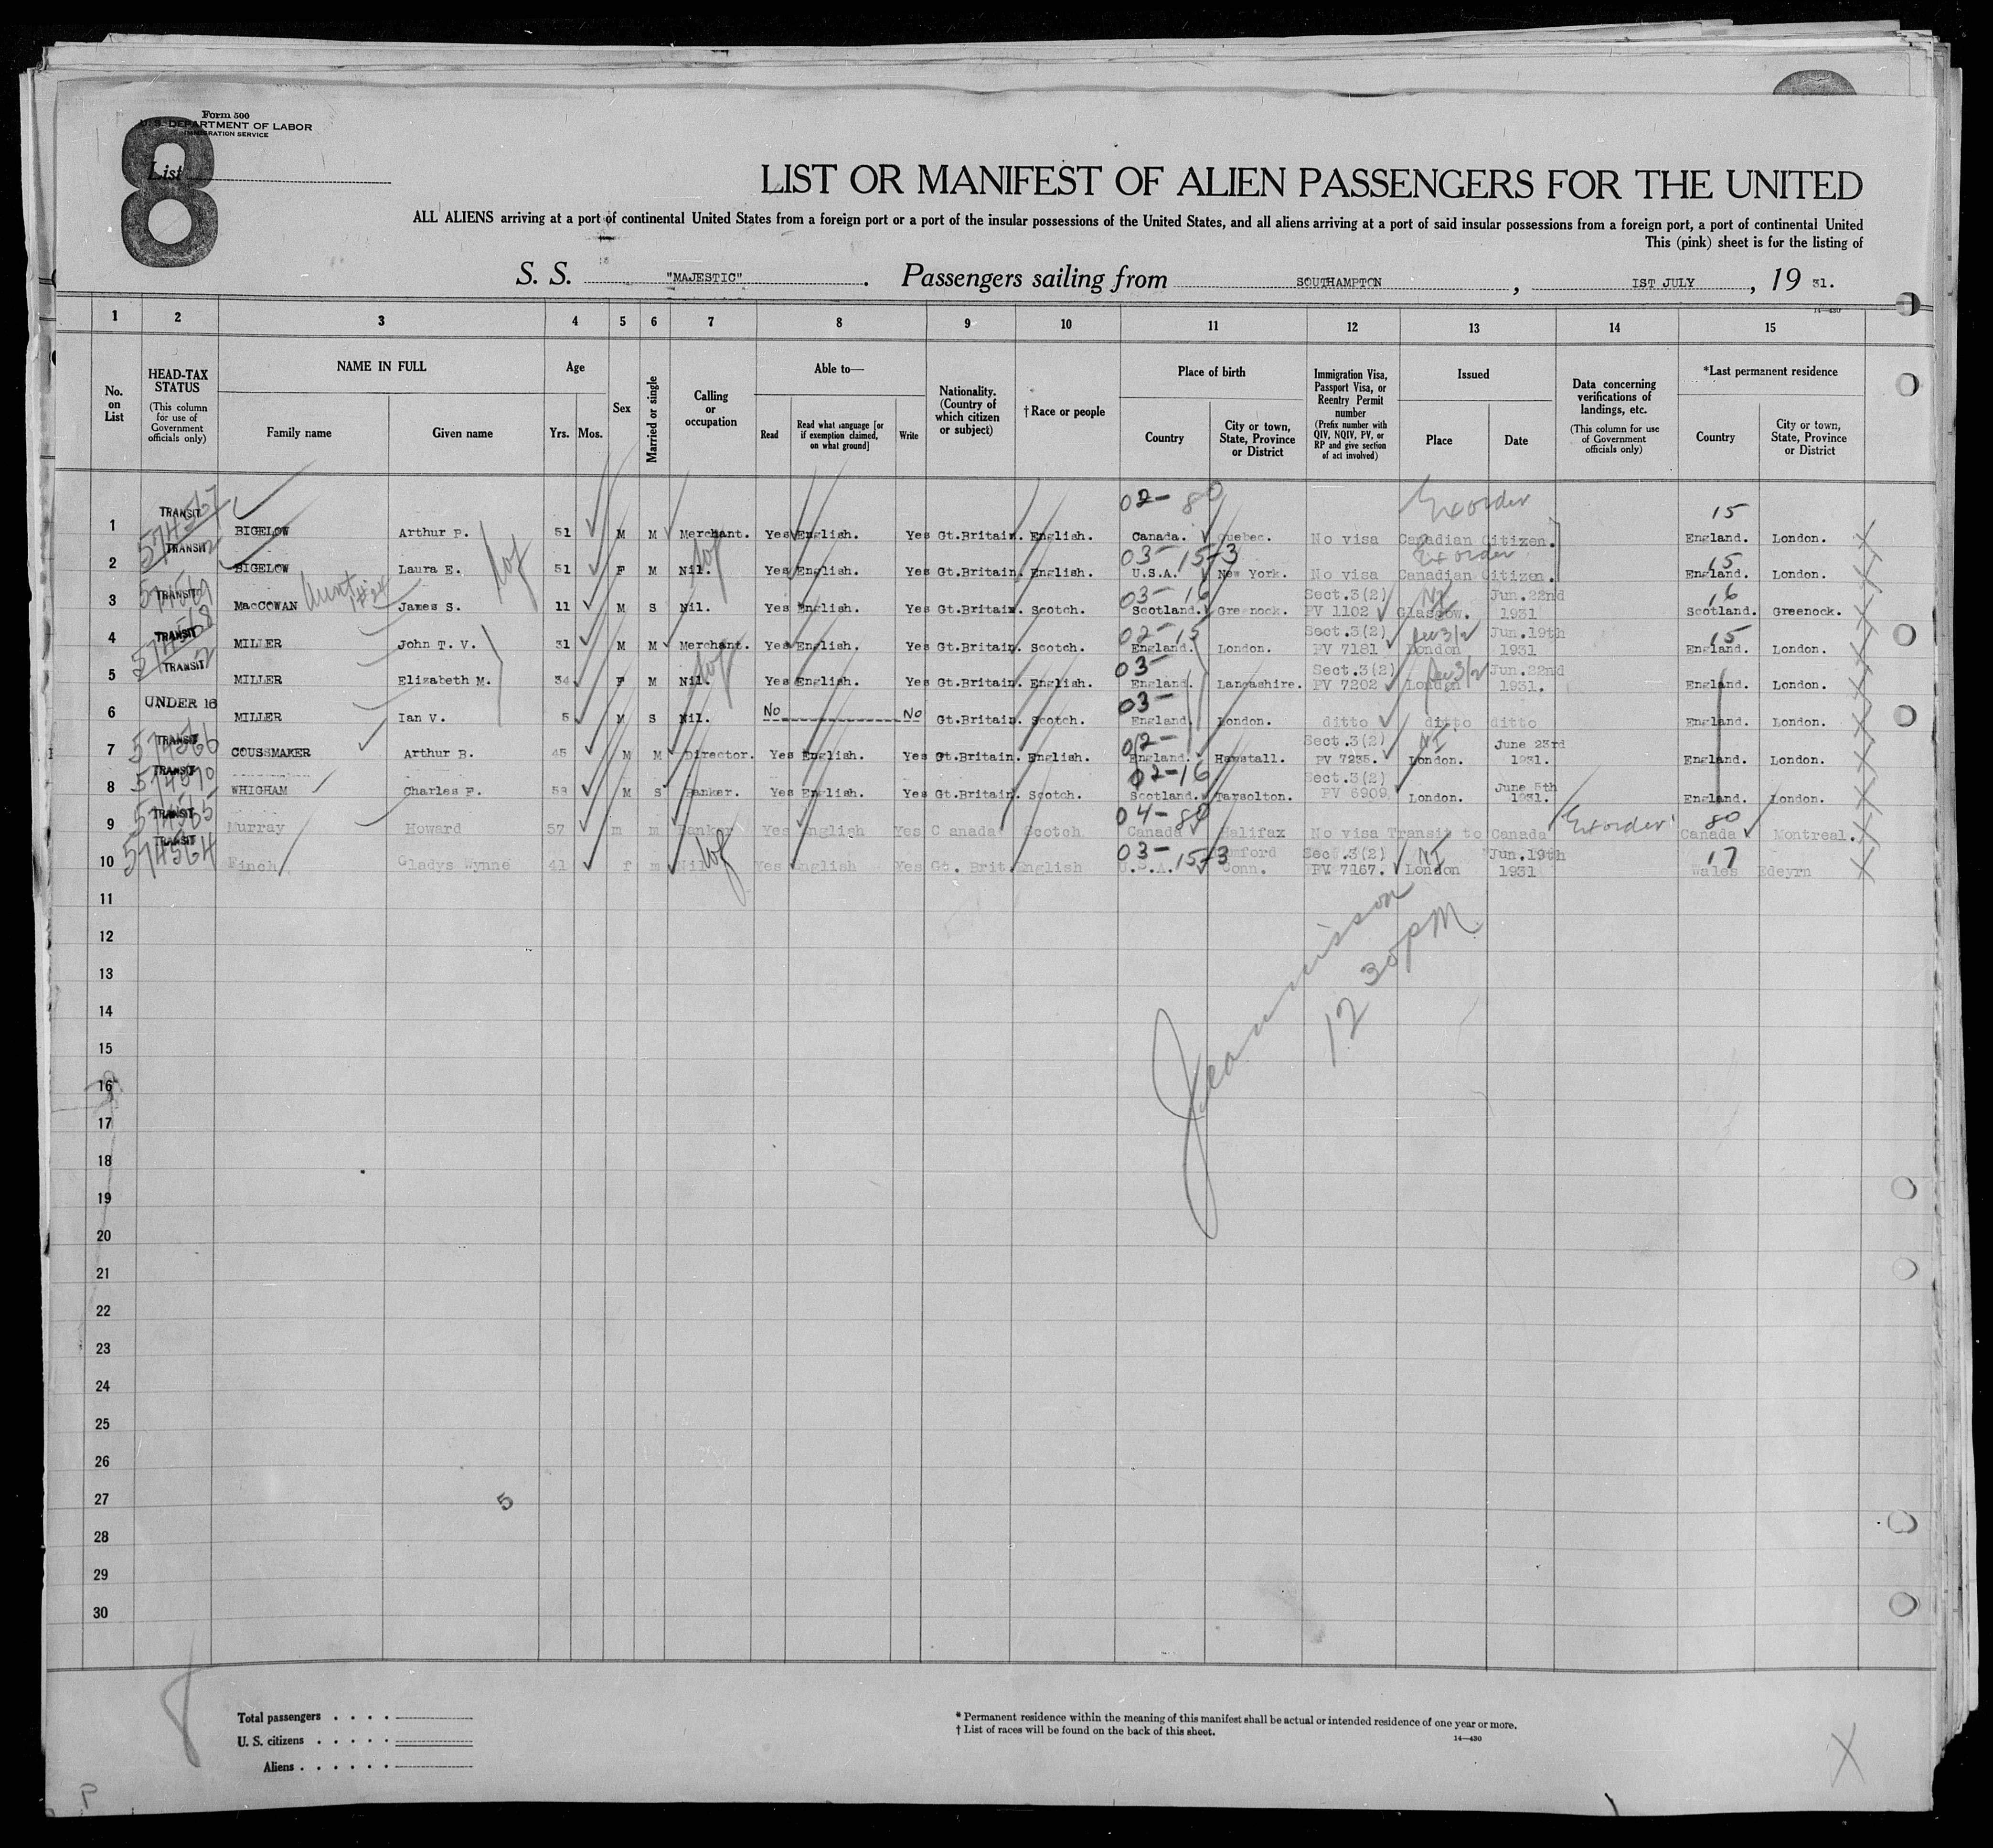 Form 500
U. S. DEPARTMENT OF LABOR
IMMIGRATION SERVICE
8
List
LIST OR MANIFEST OF ALIEN PASSENGERS FOR THE UNITED
ALL ALIENS arriving at a port of continental United States from a foreign port or a port of the insular possessions of the United States, and all aliens arriving at a port of said insular possessions from a foreign port, a port of continental United
This (pink) sheet is for the listing of
S. S. "MAJESTIC". Passengers sailing from SOUTHAMPTON, 1ST JULY, 19 31.
14—430
1 2 3 4 5 6 7 8 9 10 11 12 13 14 15
No. on List
HEAD-TAX STATUS (This column for use of Government officials only)
NAME IN FULL
Family name
Given name
Age
Yrs. Mos.
Sex
Married or single
Calling or occupation
Able to—
Read
Read what language [or if exemption claimed, on what ground]
Write
Nationality. (Country of which citizen or subject)
†Race or people
Place of birth
Country
City or town, State, Province or District
Immigration Visa, Passport Visa, or Reentry Permit number (Prefix number with QIV, NQIV, PV, or RP and give section of act involved)
Issued
Place
Date
Data concerning verifications of landings, etc. (This column for use of Government officials only)
*Last permanent residence
Country
City or town, State, Province or District
02- 80 Ex order 15
1 TRANSIT 574567 BIGELOW Arthur P. 51 M M Merchant. Yes English. Yes Gt.Britain. English. Canada. Quebec. No visa Canadian Citizen. England. London.
03- 15-3 Ex order 15
2 TRANSIT 2 BIGELOW Laura E. 51 F M Nil. Yes English. Yes Gt.Britain. English. U.S.A. New York. No visa Canadian Citizen. England. London.
03- 16 Sect.3(2) NI Jun.22nd 16
3 TRANSIT 574569 MacCOWAN Aunt James S. 11 M S Nil. Yes English. Yes Gt.Britain. Scotch. Scotland. Greenock. PV 1102 Glasgow. 1931 Scotland. Greenock.
02-15 Sect.3(2) Jun.19th 15
4 TRANSIT 574568 MILLER John T. V. 31 M M Merchant. Yes English. Yes Gt.Britain. Scotch. England. London. PV 7181 London 1931 England. London.
03- Sect.3(2) Jun.22nd
5 TRANSIT 2 MILLER Elizabeth M. 34 F M Nil. Yes English. Yes Gt.Britain. English. England. Lancashire. PV 7202 London 1931. England. London.
03-
6 UNDER 16 MILLER Ian V. 5 M S Nil. No No Gt.Britain. Scotch. England. London. ditto ditto ditto England. London.
02- Sect.3(2) NI June 23rd
7 TRANSIT 574566 COUSSMAKER Arthur B. 45 M M Director. Yes English. Yes Gt.Britain. English. England. Hawstall. PV 7235. London. 1931. England. London.
02-16 Sect.3(2) June 5th
8 TRANSIT 574570 WHIGHAM Charles F. 59 M S Banker. Yes English. Yes Gt.Britain. Scotch. Scotland. Tarsolton. PV 6909 London. 1931. England. London.
04- 80 Ex order 80
9 TRANSIT 574565 Murray Howard 57 m m Banker Yes English Yes Canada Scotch Canada Halifax No visa Transit to Canada Canada Montreal.
03- 15-3 Sec.3(2) NI Jun.19th 17
10 TRANSIT 574564 Finch Gladys Wynne 41 f m Nil Yes English Yes Gt. Brit English U.S.A. Conn. PV 7167. London 1931 Wales Edeyrn
11
12
13
14
15
16
17
18
19
20
21
22
23
24
25
26
27
28
29
30
12 30 PM
5
Total passengers
U. S. citizens
Aliens
* Permanent residence within the meaning of this manifest shall be actual or intended residence of one year or more.
† List of races will be found on the back of this sheet.
14—430
P
X